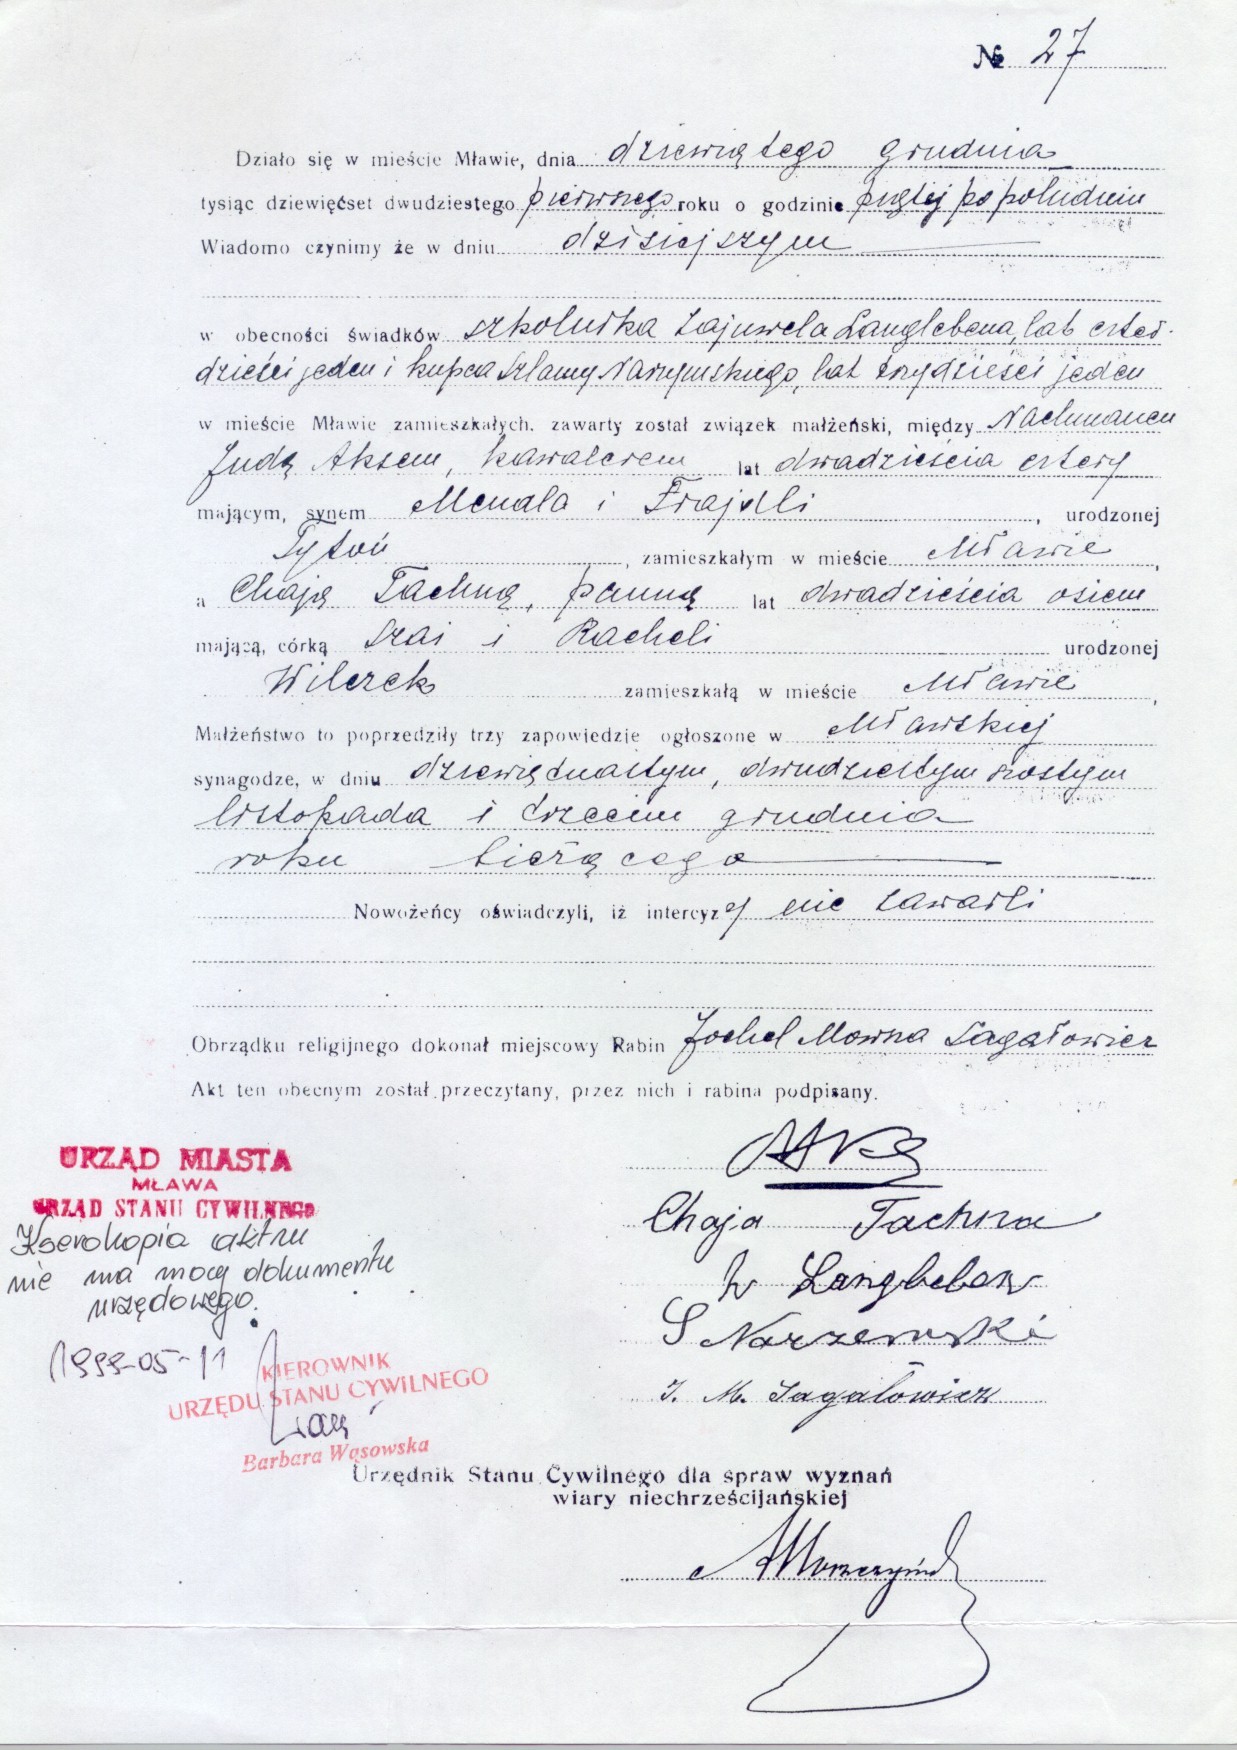 № 27
Działo się w mieście Mławie, dnia dziewiątego grudnia
tysiąc dziewięćset dwudziestego pierwszego roku o godzinie piątej po południu
Wiadomo czynimy że w dniu dzisiejszym
w obecności świadków szkolnika Zajnwela Langlebena, lat czter-
dzieści jeden i kupca Szlamy Narzymskiego, lat trzydzieści jeden
w mieście Mławie zamieszkałych. zawarty został związek małżeński, między Nachmanem
Judą Aksem, kawalerem lat dwadzieścia cztery
mającym, synem Menala i Frajdli , urodzonej
Tytoń , zamieszkałym w mieście Mławie ,
a Chają Tachną, panną lat dwadzieścia osiem
mającą, córką Szai i Racheli urodzonej
Wilczek zamieszkałą w mieście Mławie ,
Małżeństwo to poprzedziły trzy zapowiedzie ogłoszone w Mławskiej
synagodze, w dniu dziewiętnastym, dwudziestym szóstym
listopada i trzecim grudnia
roku bieżącego
Nowożeńcy oświadczyli, iż intercyzy nie zawarli
Obrządku religijnego dokonał miejscowy Rabin Jochel Mowsza Sagałowicz
Akt ten obecnym został przeczytany, przez nich i rabina podpisany.
URZĄD MIASTA
MŁAWA
URZĄD STANU CYWILNEGO
Kserokopia aktu
nie ma mocy dokumentu
urzędowego.
1999-05-11
Chaja Tachna
Langleben
S Narzemski
J. M. Sagałowicz
KIEROWNIK
URZĘDU STANU CYWILNEGO
Barbara Wąsowska
Urzędnik Stanu Cywilnego dla spraw wyznań
wiary niechrześcijańskiej